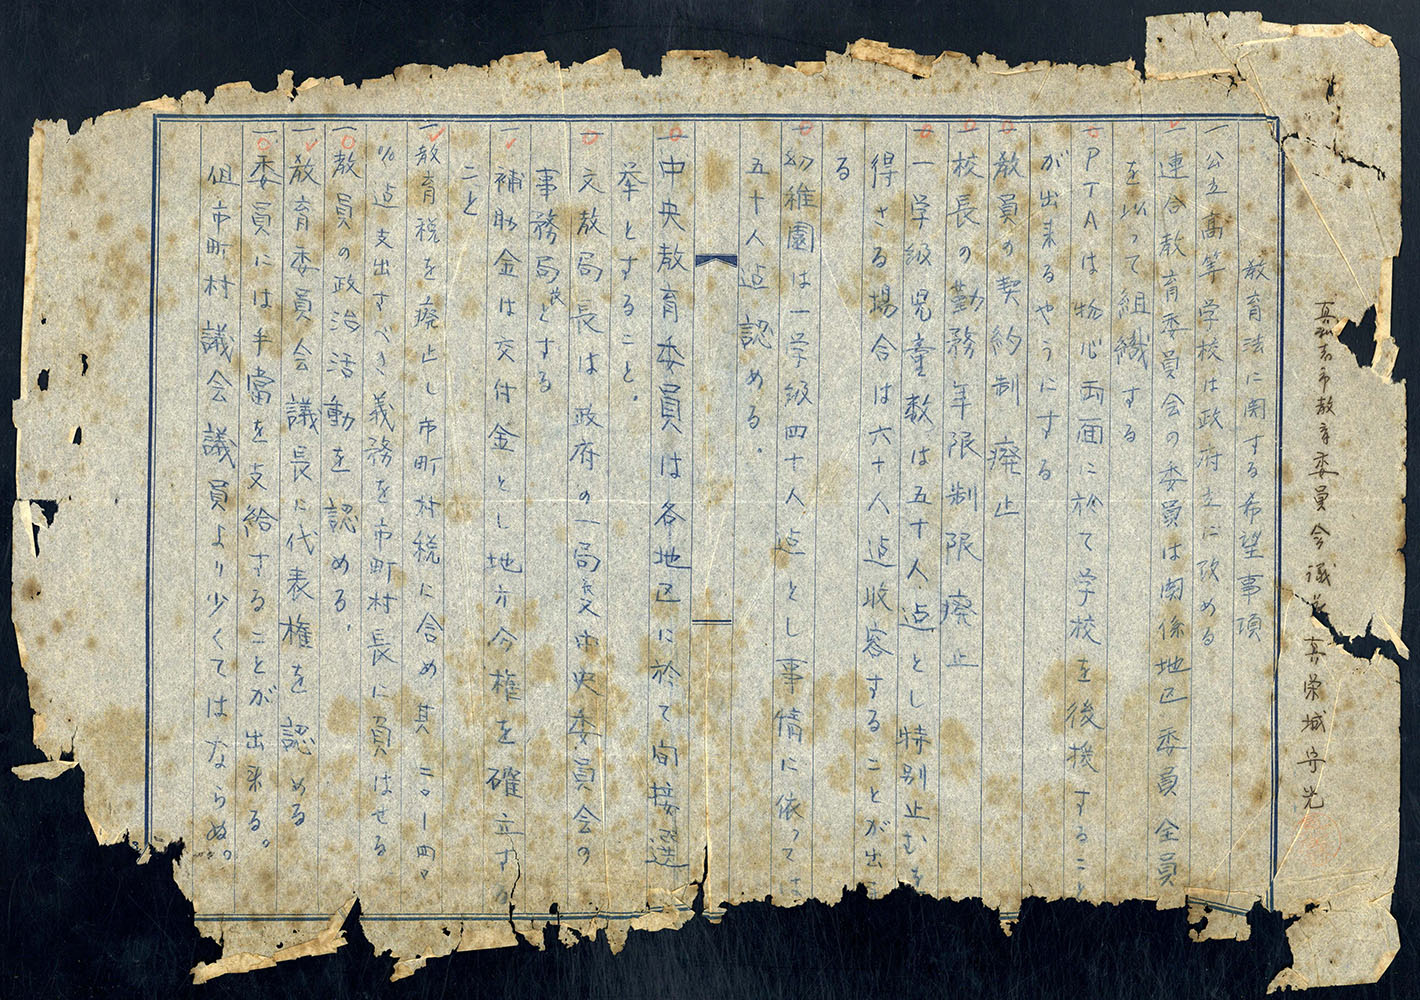 真和志市教育委員会議長 真栄城守光
教育法に関する希望事項
一公立高等学校は政府立に改める
一連合教育委員会の委員は関係地区委員全員
を以って組織する
一PTAは物心両面に於て学校を後援すること
が出来るやうにする
一教員の契約制廃止
一校長の勤務年限制限廃止
一一学級児童数は五十人迠とし特別止むを
得さる場合は六十人迠收容することが出来
る
一幼稚園は一学級四十人迠とし事情に依っては
五十人迠認める.
一中央教育委員は各地区に於て間接選
挙とすること.
一文教局長は政府の一局長 中央委員会の
事務局長とする
一補助金は交付金とし地方分権を確立する
こと
一教育税を廃止し市町村税に含め其二〇ー四〇
%迠支出すべき義務を市町村長に負はせる
一教員の政治活動を認める.
一教育委員会議長に代表権を認める
一委員には手當を支給することが出来る。
但市町村議会議員より少くてはならぬ。